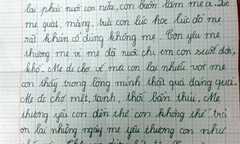 lại phải nuôi con nữa, con buồn lắm mẹ ạ. Dù
mẹ quát, mắng, trừ con lúc học lúc đó mẹ
rất khùn có đúng không mẹ. Con yêu mẹ
thương mẹ vì mẹ đã nuôi chị em con suốt đời,
khổ. Mẹ đi chợ về mà con lại nhười với mẹ
con thấy trong lòng mình thật quá đáng quá.
Mẹ đi chợ mệt, tanh, thở bẩn thỉu, Mẹ
thương yêu con đến thế con không thể trả
ơn lại những ngày mẹ yêu thương con như